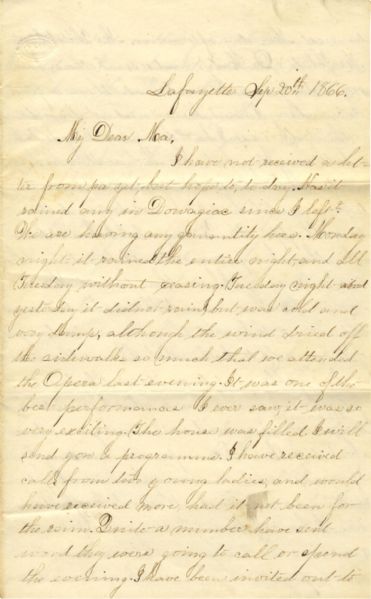 Lafayette Sep 20th 1866.
My Dear Ma,
I have not received a let-
ter from pa yet, but hope to, to day. Has it
rained any in Dowagiac since I left?
We are having any quantity here. Monday
night it rained the entire night and all
Tuesday without ceasing. Tuesday night and
yesterday it did not rain, but was cold and
very damp, although the wind dried off
the sidewalks so much that we attended
the Opera last evening. It was one of the
best performances I ever saw, it was so
very exciting. The house was filled. I will
send you a programme. I have received
calls from two young ladies, and would
have received more, had it not been for
the rain. Quite a number have sent
word they were going to call or spend
the evening. I have been invited out to